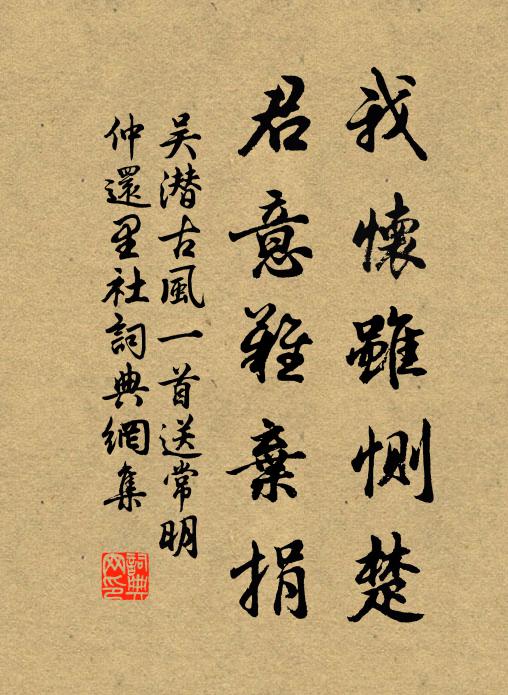 我懷雖惻楚
君意難棄捐
吴潛古風一首送常明
仲還里社詞典網集
詞典网印